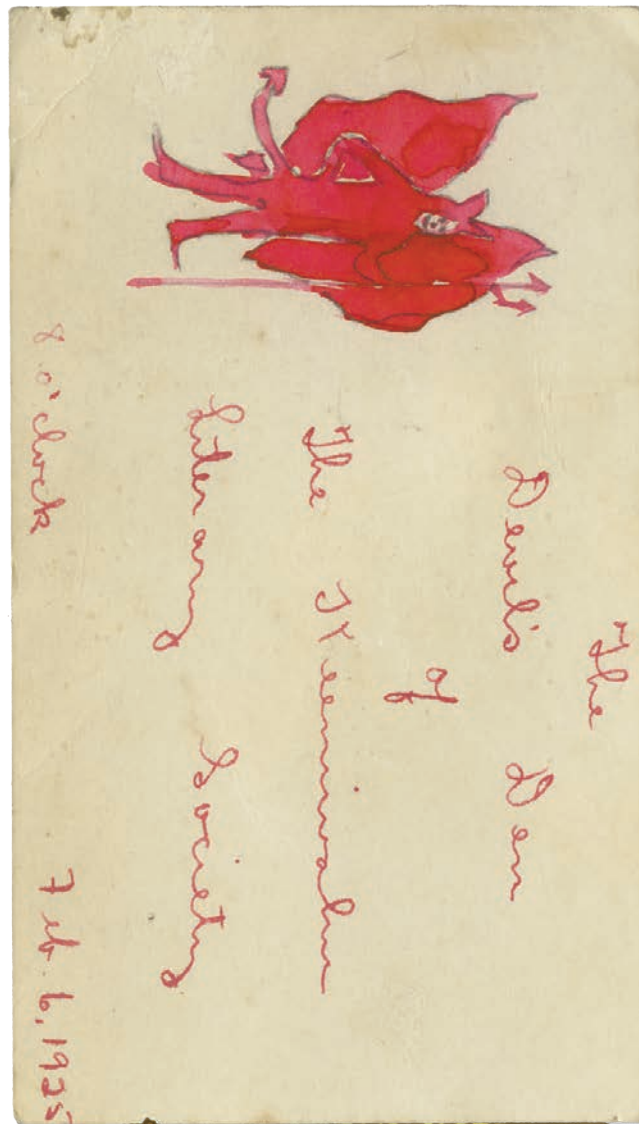 The
Devil's Den
of
The
Literary Society
8 o'clock Feb. 6, 1925